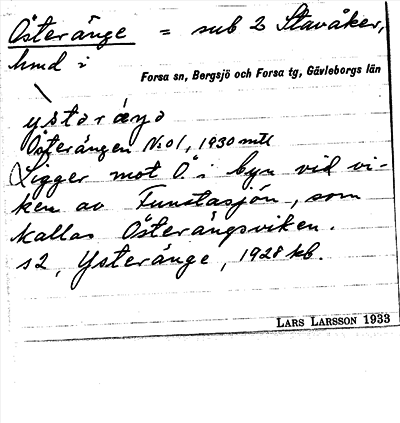 Österänge = sub 2 Stavåker,
hmd i
Forsa sn, Bergsjö och Forsa tg, Gävleborgs län
ystəræŋə
Österängen No 1, 1930 mtl
Ligger mot Ö i byn vid vi-
ken av Funstasjön, som
kallas Österängsviken.
s2, Ysteränge, 1928 kb.
LARS LARSSON 1933